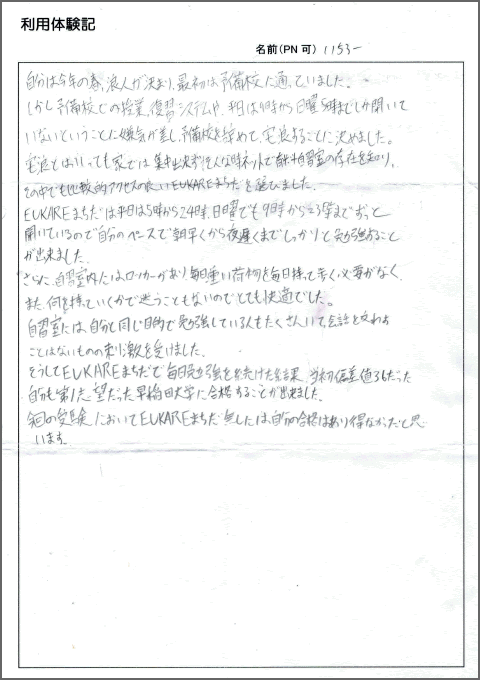 利用体験記
名前(PN可) いちろー
自分は今年の春、浪人が決まり、最初は予備校に通っていました。
しかし予備校での授業、復習システムや、平日は 時から日曜 時までしか開いて
いないということに嫌気が差し、予備校を辞めて、宅浪することに決めました。
宅浪とはいっても家では集中出来ずそんな時ネットで有料自習室の存在を知り、
その中でも比較的アクセスの良いEUKAREまちだを選びました。
EUKAREまちだは平日は5時から24時、日曜でも9時から23時までずっと
開いているので自分のペースで朝早くから夜遅くまでしっかりと勉強すること
が出来ました。
さらに、自習室内にはロッカーがあり毎日重い荷物を毎日持って歩く必要がなく、
また、何を持っていくかで迷うこともないのでとても快適でした。
自習室には、自分と同じ目的で勉強している人もたくさんいて会話を交わす
ことはないものの刺激を受けました。
そうしてEUKAREまちだで毎日勉強を続けた結果、当初偏差値36だった
自分も第1志望だった早稲田大学に合格することが出来ました。
今回の受験においてEUKAREまちだ無しには自分の合格はあり得なかったと思
います。